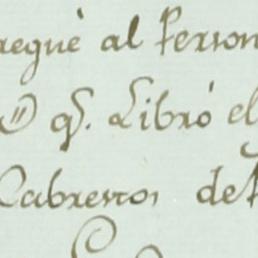 regué al Person
qᵉ. Libró el
Cabrestos, de